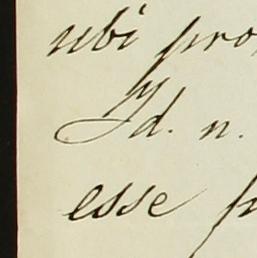 ubi pro
Id. n.
esse p